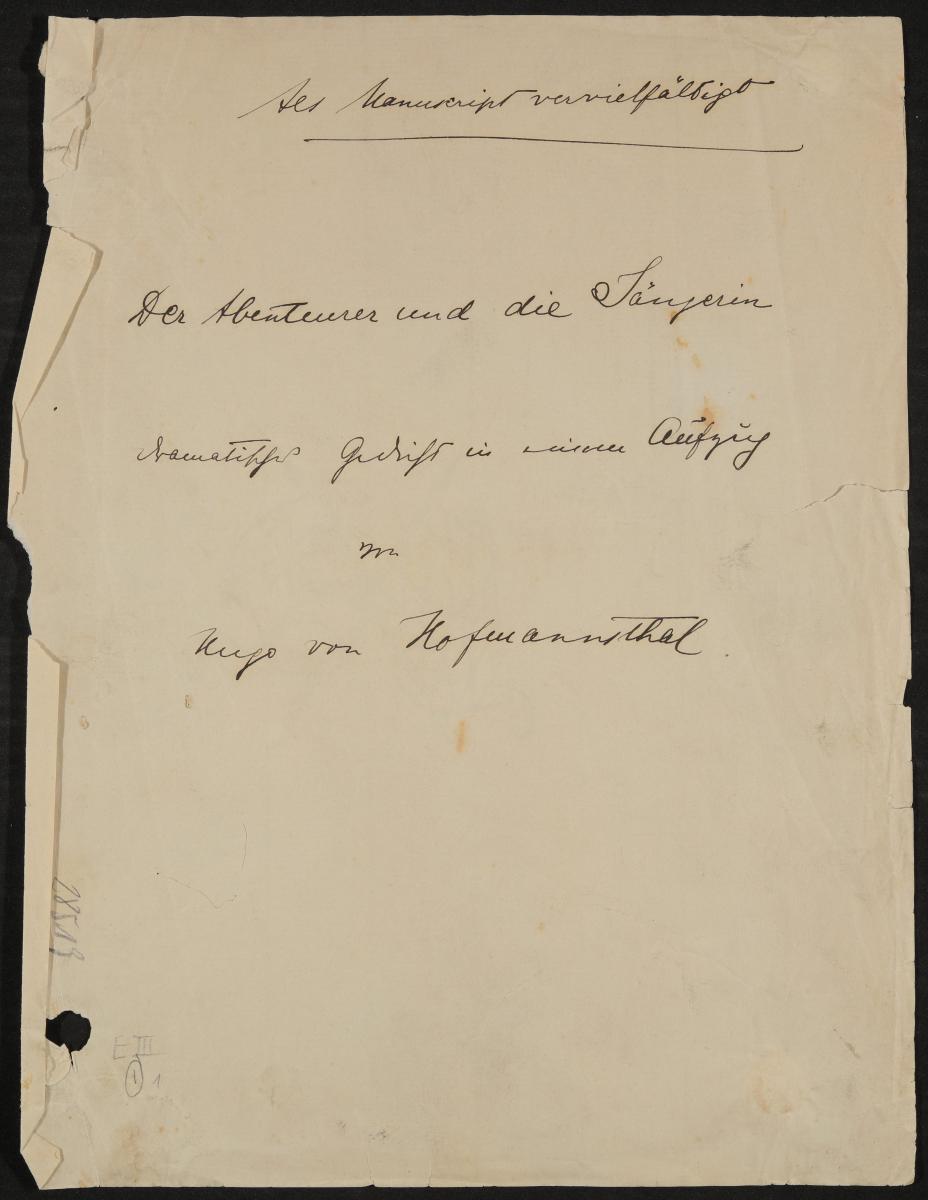 Als Manuscript vervielfältigt
Der Abenteurer und die Sängerin
dramatisches Gedicht in einem Aufzug
von
Hugo von Hofmannsthal.
28519
E III
1 1